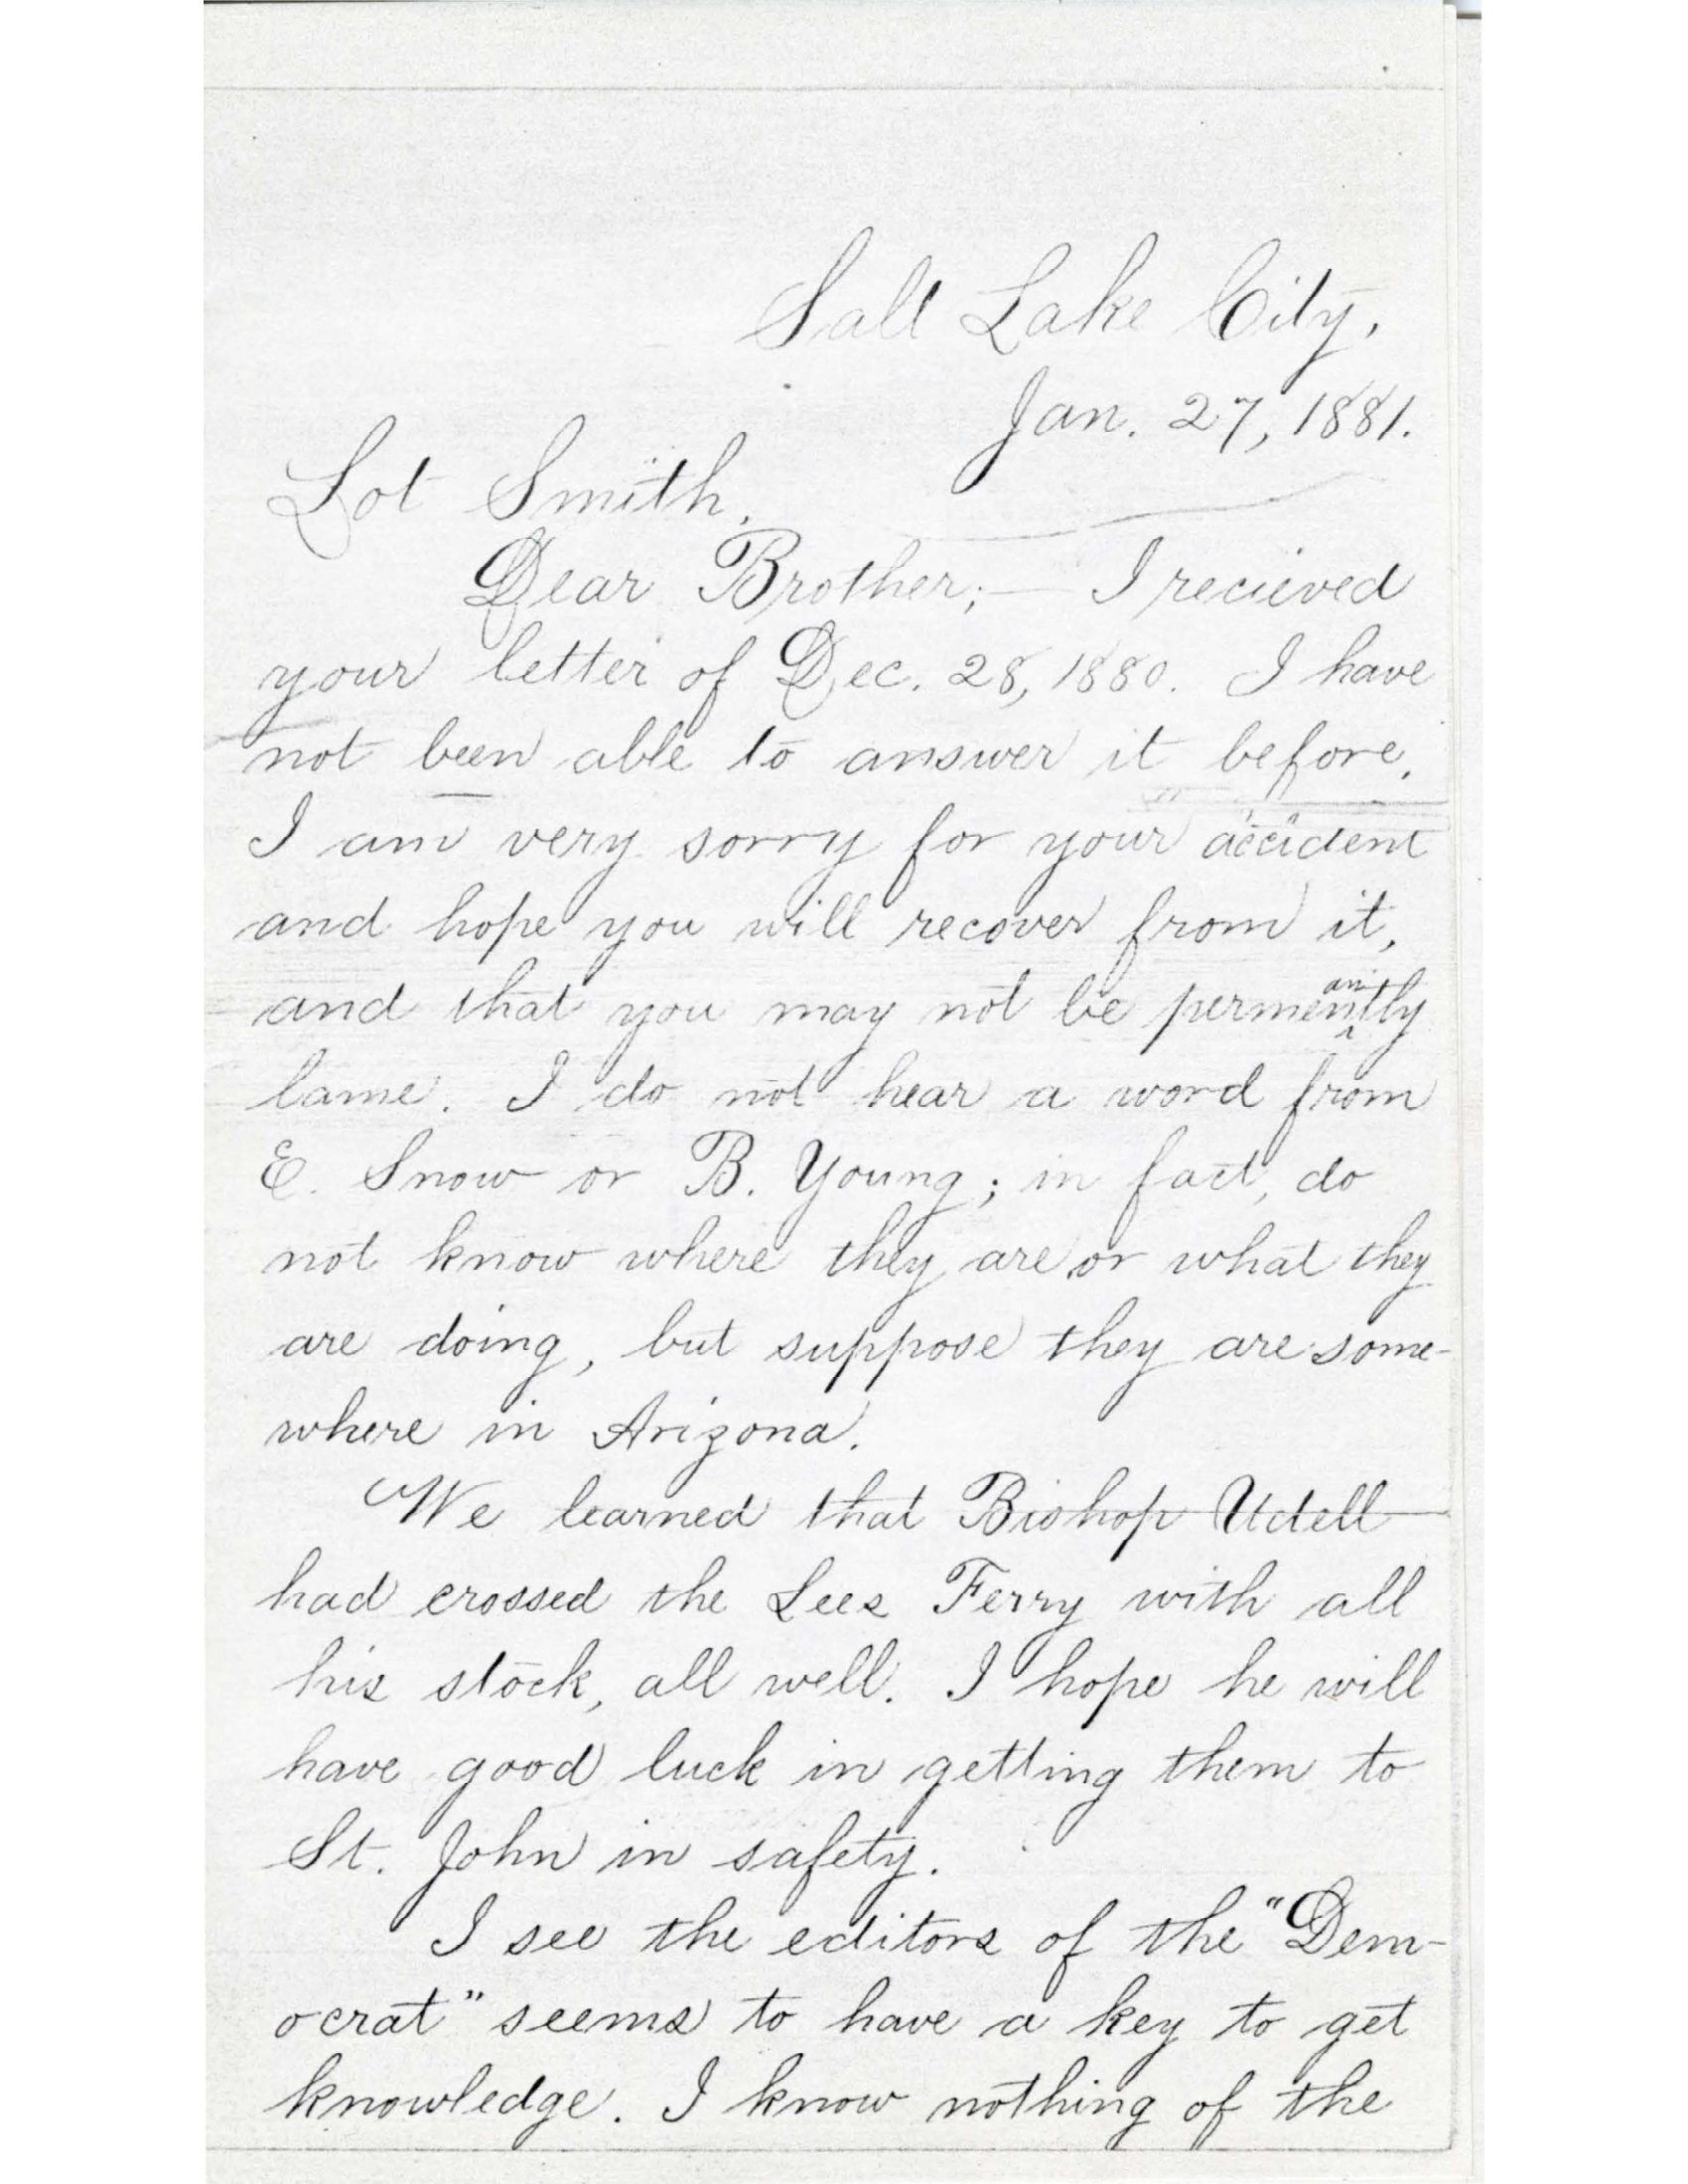 Salt Lake City,
Jan. 27, 1881.
Lot Smith,
Dear Brother;— I recieved
your letter of Dec. 28, 1880. I have
not been able to answer it before.
I am very sorry for your accident
and hope you will recover from it,
and that you may not be permenantly
lame. I do not hear a word from
E. Snow or B. Young; in fact, do
not know where they are or what they
are doing, but suppose they are some-
where in Arizona.
We learned that Bishop Udell
had crossed the Lees Ferry with all
his stock, all well. I hope he will
have good luck in getting them to
St. John in safety.
I see the editors of the "Dem-
ocrat" seems to have a key to get
knowledge. I know nothing of the